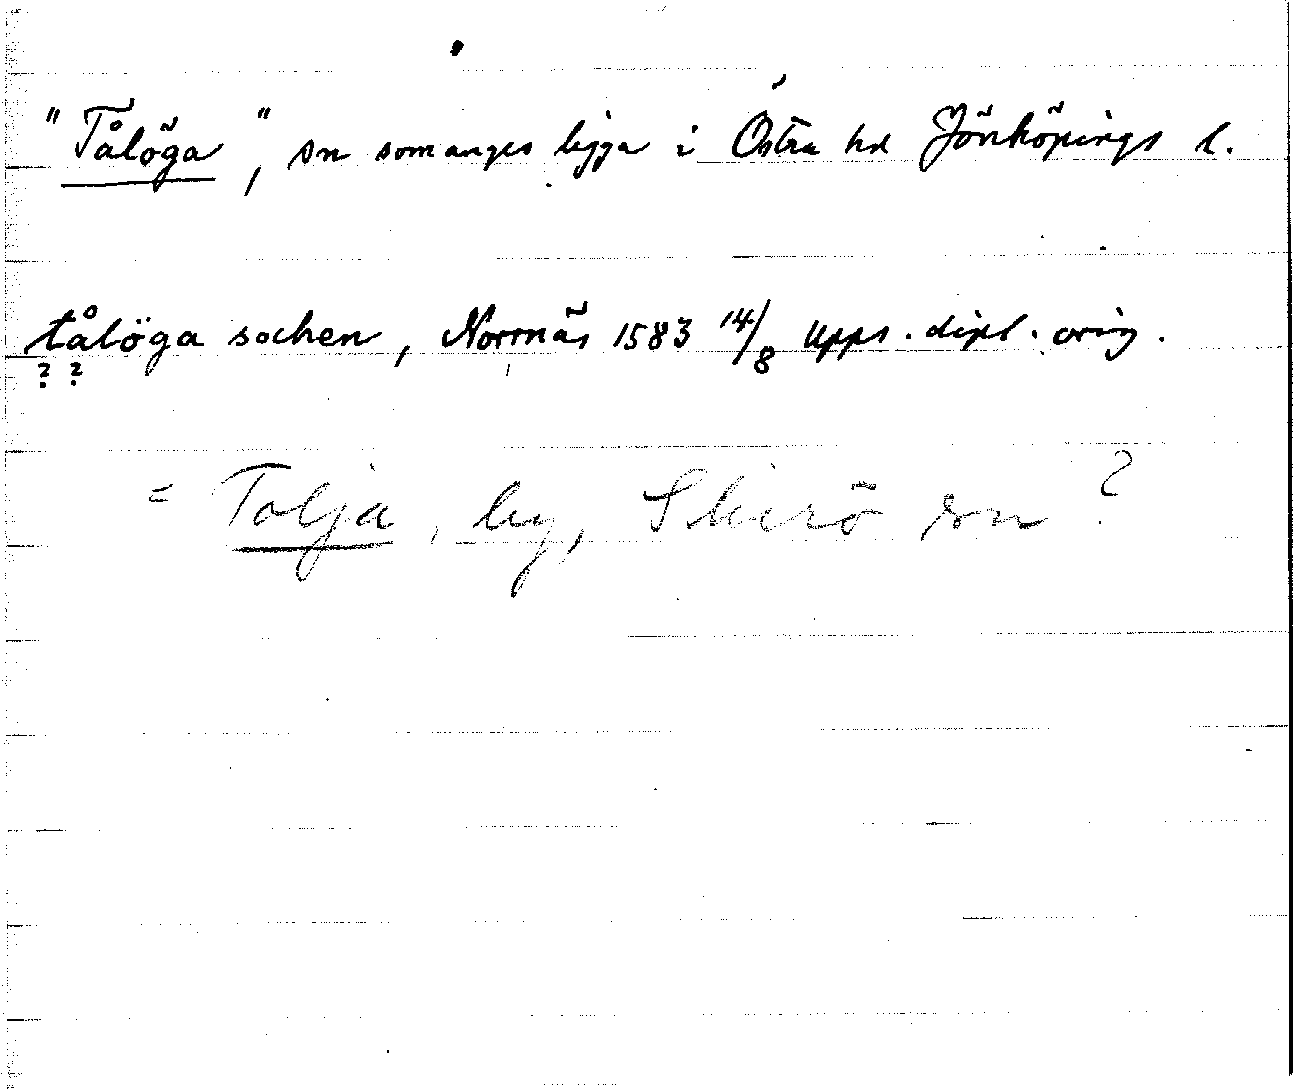 "Tålöga", sn som anges ligga i Östra hd Jönköpings l.
tålöga sochen, Norrnäs 1583 14/8 Upps. dipl. orig.
? ?
= Tolja, by, Skirö sn ?